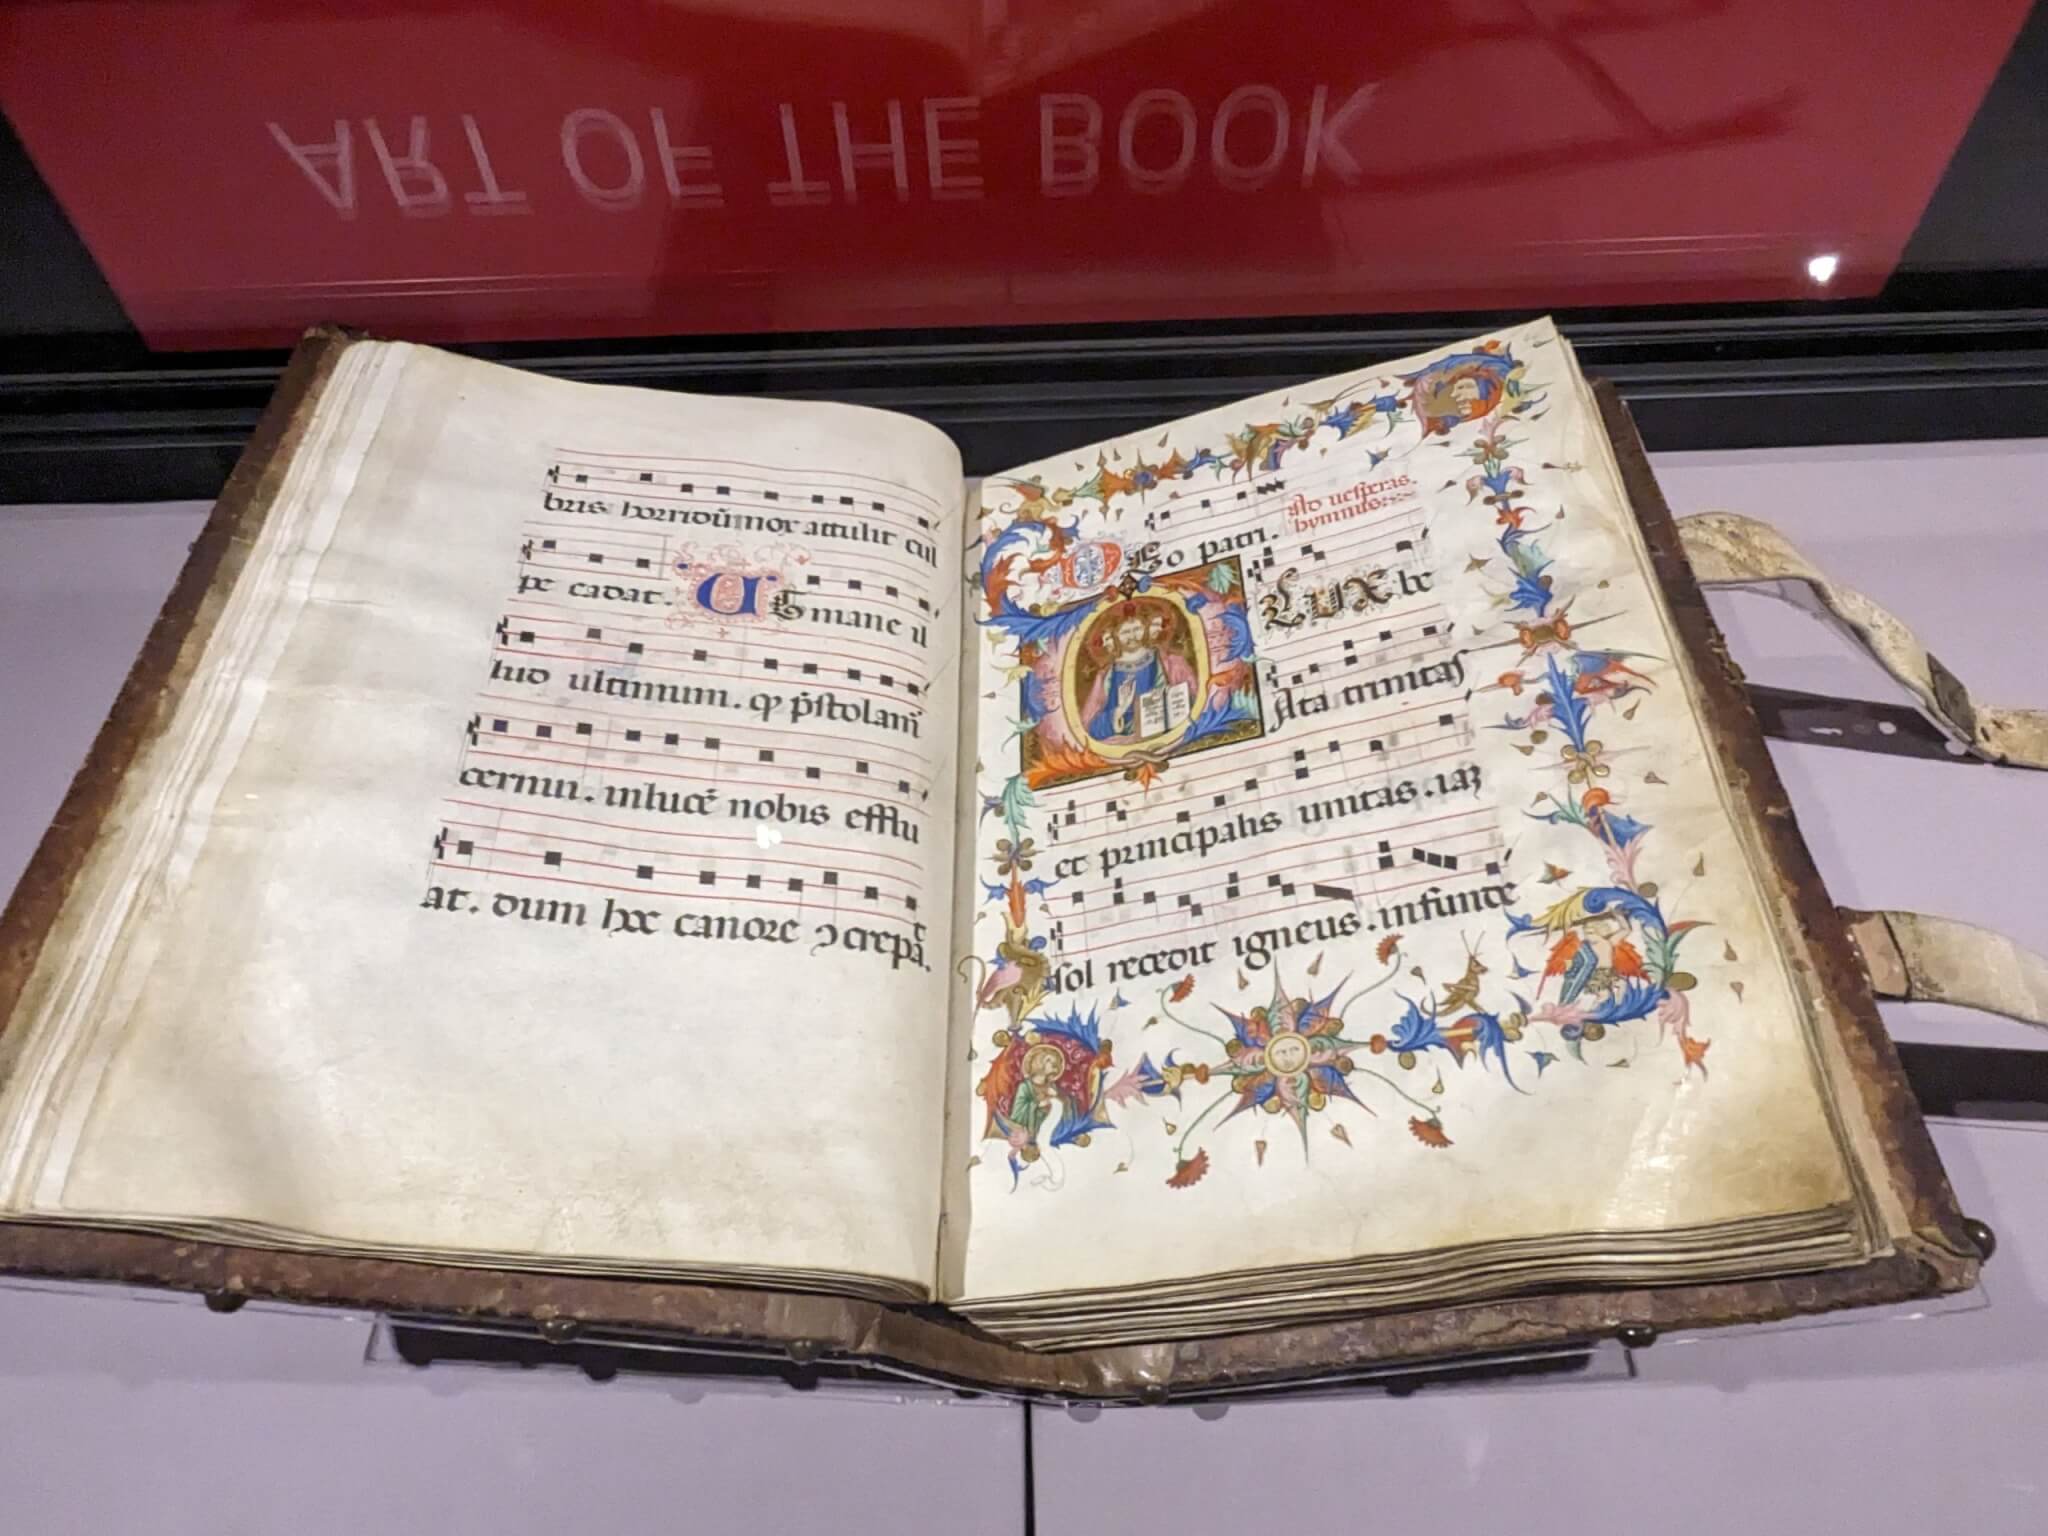 ART OF THE BOOK
bris horridũ mox attulit cul
pe cadat. Ut mane il
lud ultimum. qđ p̃stolam̃
cernui. in lucẽ nobis efflu
at. dum hoc canore ɔcrepat.
Deo patri. Ad vesperas.
hymnus.
O LUX be
Ata trinitas
et principalis unitas. iaꝫ
sol recedit igneus. infunde